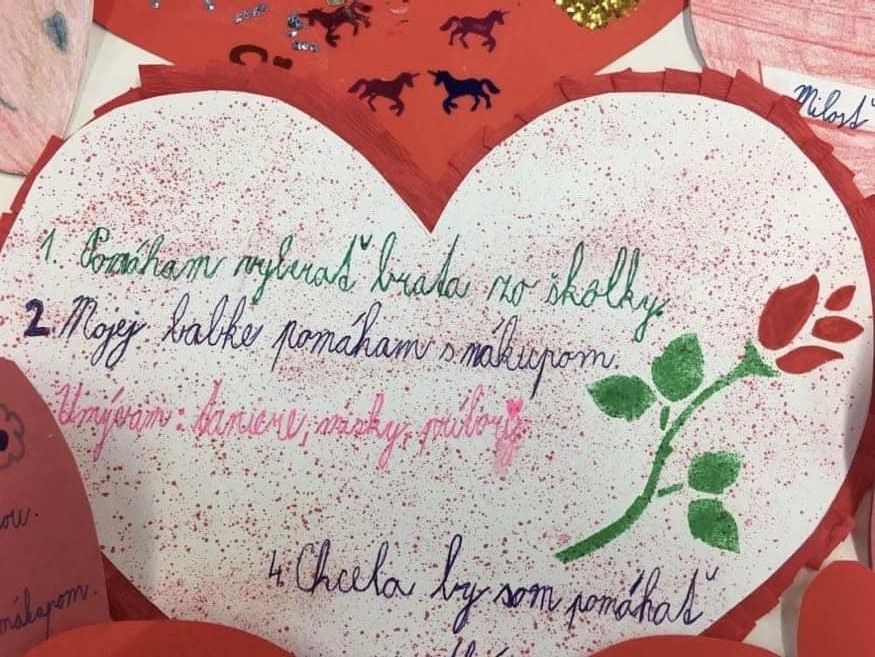 Milosť
1. Pomáham vyberať brata zo školky.
2 Mojej babke pomáham s nákupom.
Umývam: taniere, misky, príbory
ou.
nákupom.
4. Chcela by som pomáhať